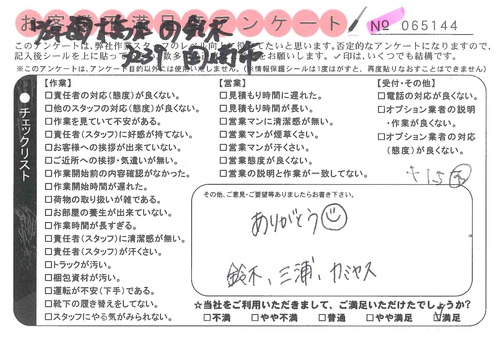 お客様満足度アンケート
No 065144
このアンケートは、弊社作業スタッフのレベル向上に役立てたいと思います。否定的なアンケートになりますので、
記入後シールを上に貼って
お願いします。✓印は、いくつでも結構です。
※このアンケートは、アンケート目的以外には使用いたしません。(※情報保護シールは1度はがすと、再度貼りなおすことはできません)
チェックリスト
【作業】
□責任者の対応(態度)が良くない。
□他のスタッフの対応(態度)が良くない。
□作業を見ていて不安がある。
□責任者(スタッフ)に好感が持てない。
□お客様への挨拶が出来ていない。
□ご近所への挨拶・気遣いが無い。
□作業開始前の内容確認がなかった。
□作業開始時間が遅れた。
□荷物の取り扱いが雑である。
□お部屋の養生が出来ていない。
□作業時間が長すぎる。
□責任者(スタッフ)に清潔感が無い。
□責任者(スタッフ)が汗くさい。
□トラックが汚い。
□梱包資材が汚い。
□運転が不安(下手)である。
□靴下の履き替えをしてない。
□スタッフにやる気がみられない。
【営業】
□見積もり時間に遅れた。
□見積もり時間が長い。
□営業マンに清潔感が無い。
□営業マンが煙草くさい。
□営業マンが汗くさい。
□営業態度が良くない。
□営業の説明と作業が一致してない。
【受付・その他】
□電話の対応が良くない。
□オプション業者の説明
・作業が良くない。
□オプション業者の対応
(態度)が良くない。
その他、ご意見・ご要望等ありましたらお書き下さい。
ありがとう
鈴木、三浦、カミヤス
☆当社をご利用いただきまして、ご満足いただけたでしょうか?
□不満 □やや不満 □普通 □やや満足 □満足